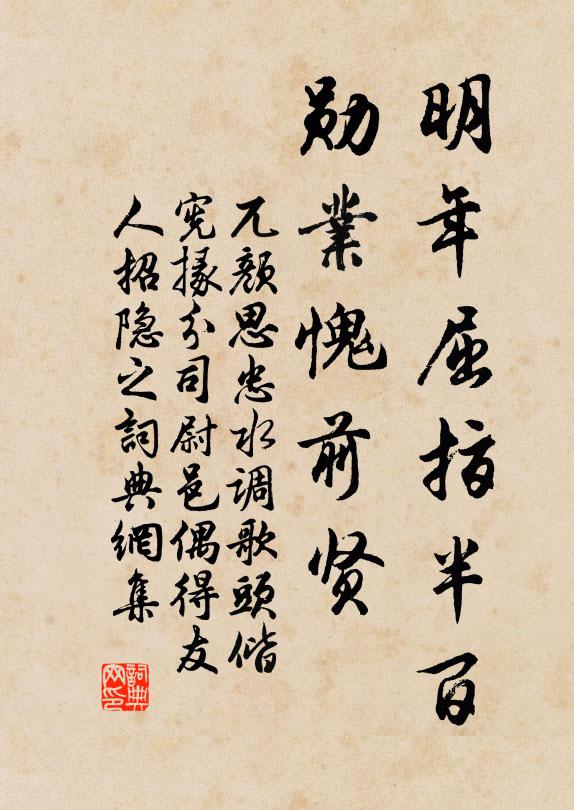 明年屈指半百
勋業愧前贤
兀颜思忠水调歌頭偕
宪掾分司尉邑偶得友
人招隐之詞典網集
詞典
网印